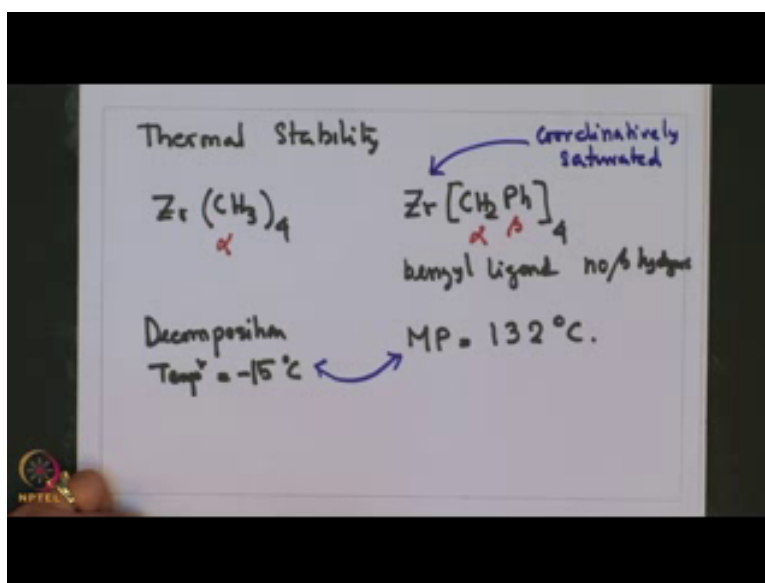 Thermal Stability
Coordinatively
saturated
Zr (CH3)4
α
Zr [CH2 Ph]4
α β
benzyl ligand no β hydrogen
Decomposition
Tempr = -15 °C
MP = 132 °C.
NPTEL